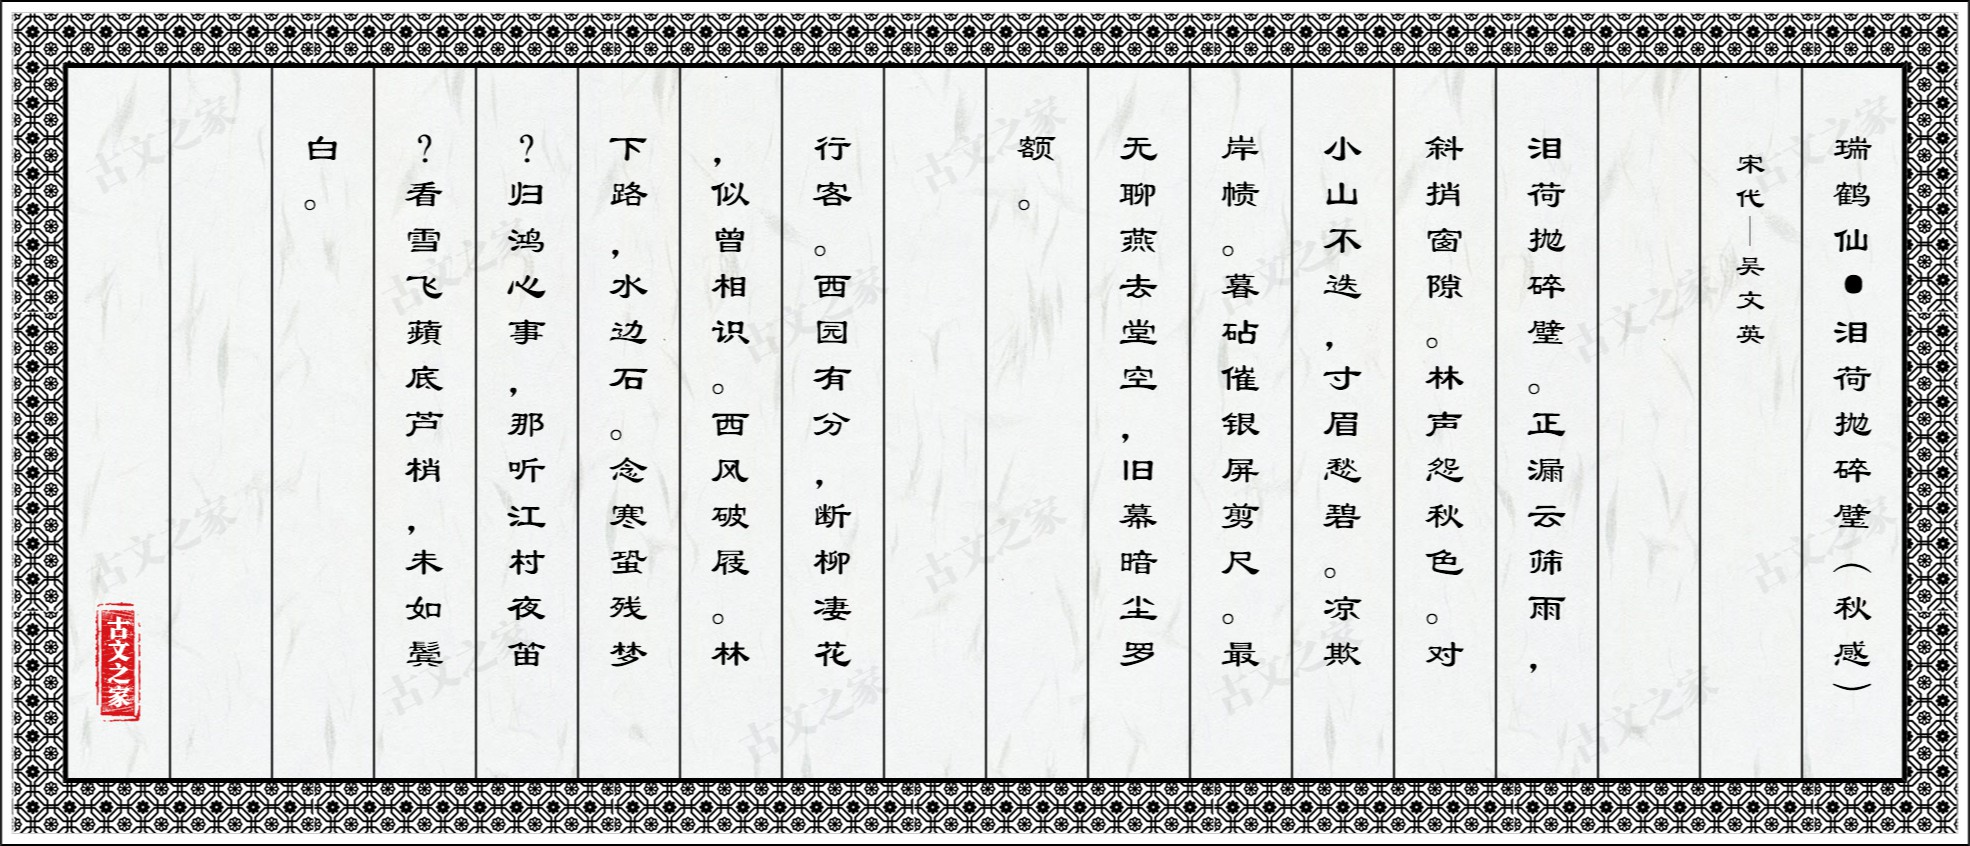 瑞鹤仙●泪荷抛碎璧（秋感）
宋代—吴文英
泪荷抛碎璧。正漏云筛雨，
斜捎窗隙。林声怨秋色。对
小山不迭，寸眉愁碧。凉欺
岸帻。暮砧催银屏剪尺。最
无聊燕去堂空，旧幕暗尘罗
额。
行客。西园有分，断柳凄花
，似曾相识。西风破屐。林
下路，水边石。念寒蛩残梦
？归鸿心事，那听江村夜笛
？看雪飞蘋底芦梢，未如鬓
白。
古文之家